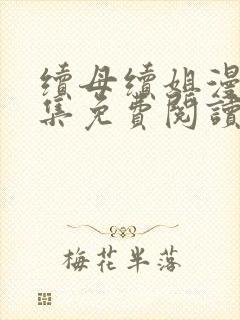 續母續姐漫
集免費閱讀
梅花半落